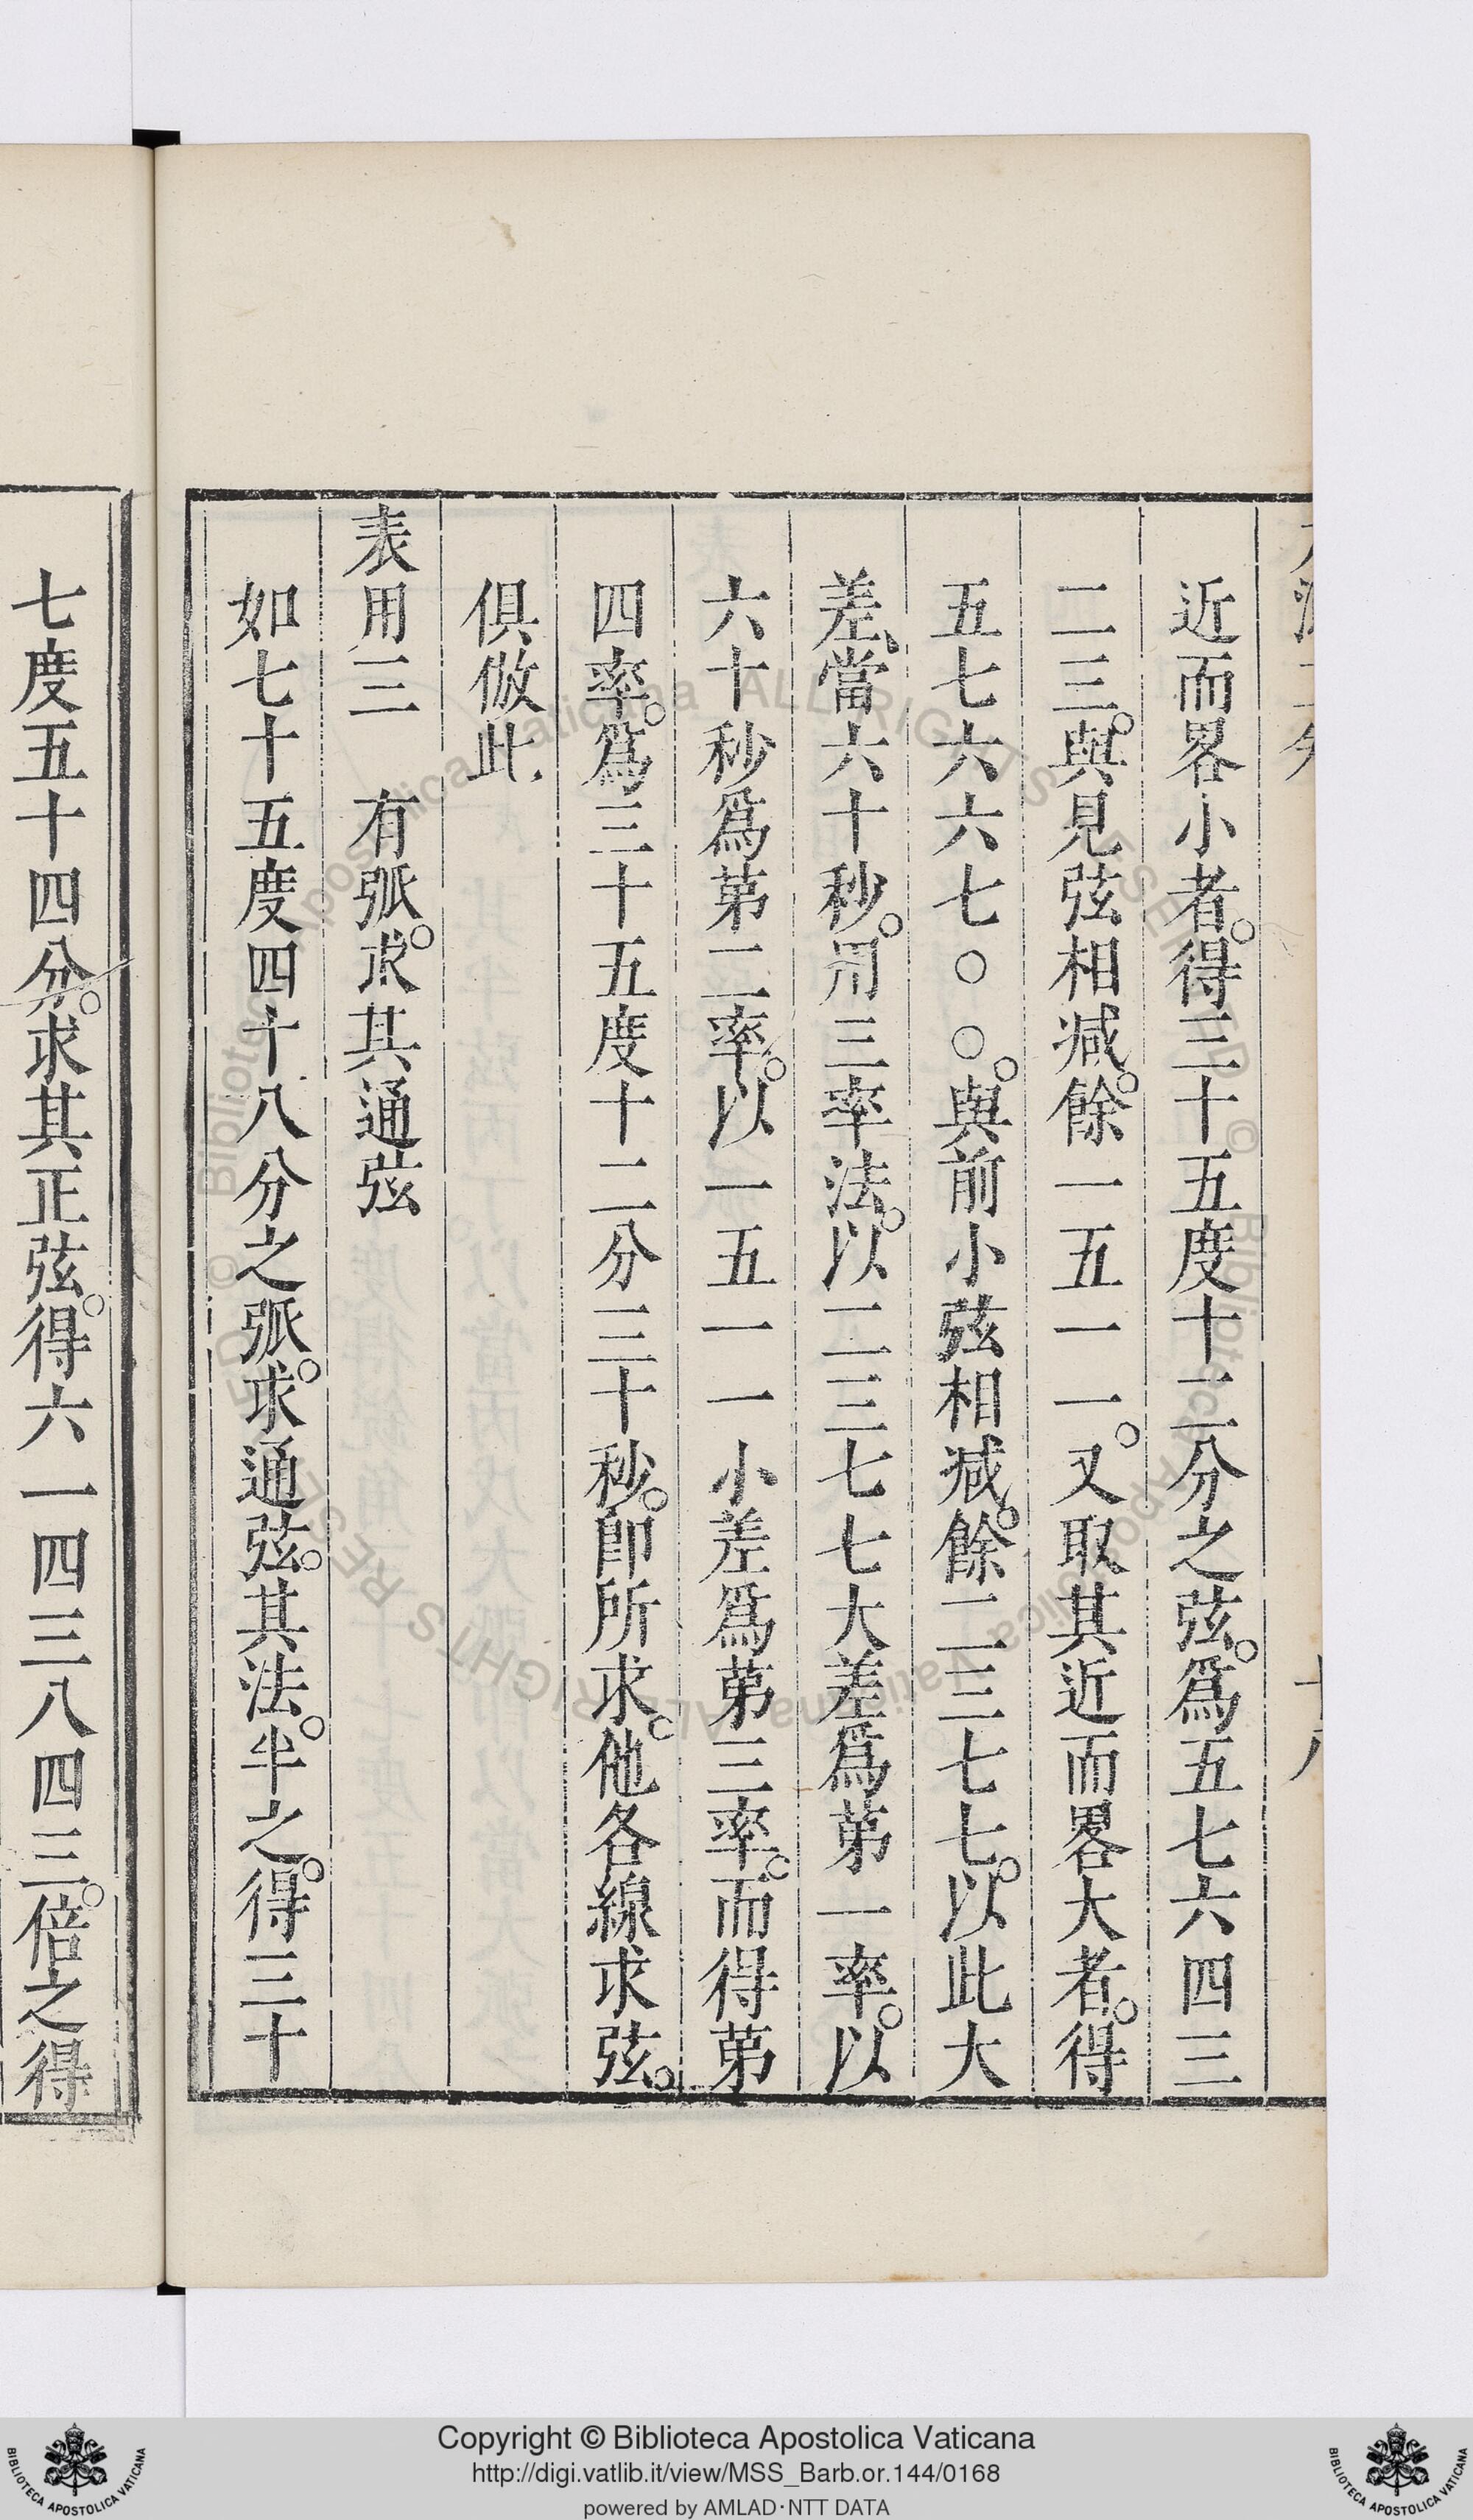 近而畧小者。得三十五度十二分之弦。爲五七六四三
二三。與見弦相减。餘一五一一。又取其近而畧大者。得
五七六六七〇〇。與前小弦相减。餘二三七七。以此大
差、當六十秒。用三率法。以二三七七大差爲第一率。以
六十秒爲第二率。以一五一一小差爲第三率。而得第
四率。爲三十五度十二分三十秒。卽所求。他各線求弦。
俱倣此.
表用二　有弧。求其通弦
如七十五度四十八分之弧。求通弦。其法。半之。得三十
七度五十四分。求其正弦。得六一四三八四三。倍之得
十八
Copyright © Biblioteca Apostolica Vaticana
http://digi.vatlib.it/view/MSS_Barb.or.144/0168
powered by AMLAD·NTT DATA
BIBLIOTECA APOSTOLICA VATICANA
BIBLIOTECA APOSTOLICA VATICANA